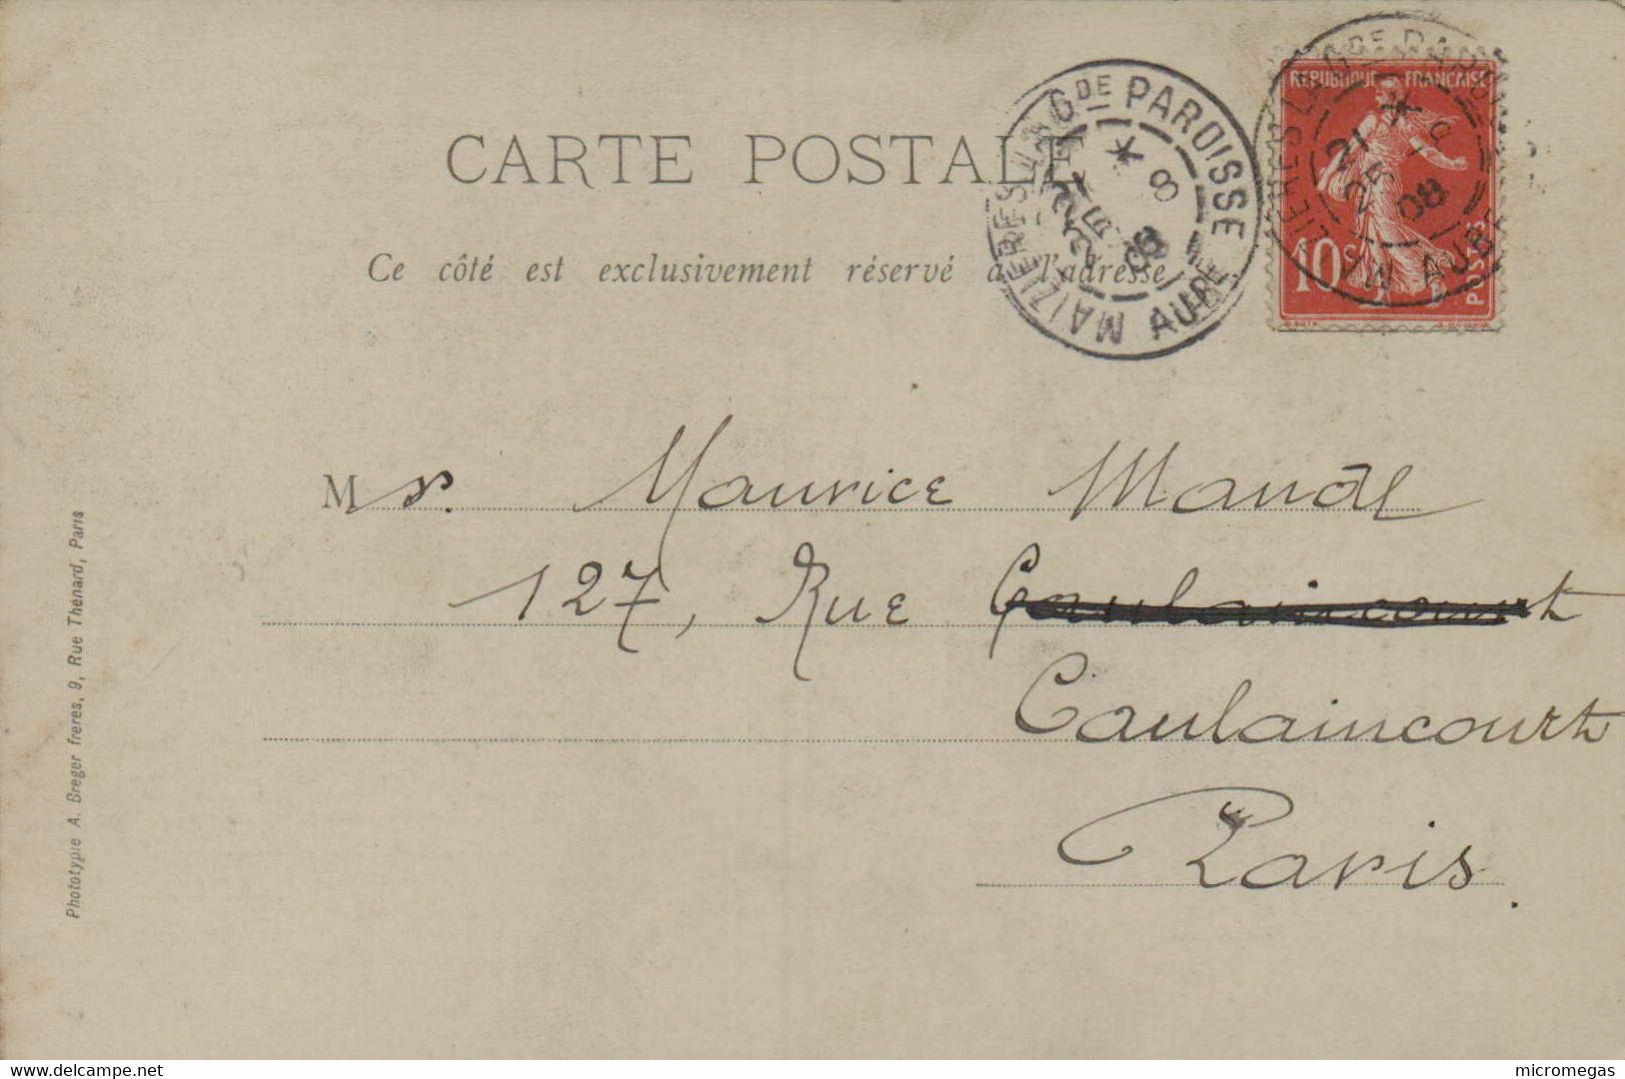 CARTE POSTALE
Ce côté est exclusivement réservé à l'adresse
MAIZIERES LA Gde PAROISSE
* 8
08
AUBE
REPUBLIQUE FRANÇAISE
10 c.
POSTES
21 * 25 -8 08
AUBE
Mr. Maurice
127, Rue Caulaincourt
Caulaincourt
Paris.
Phototypie A. Breger freres, 9, Rue Thénard, Paris
www.delcampe.net
micromegas